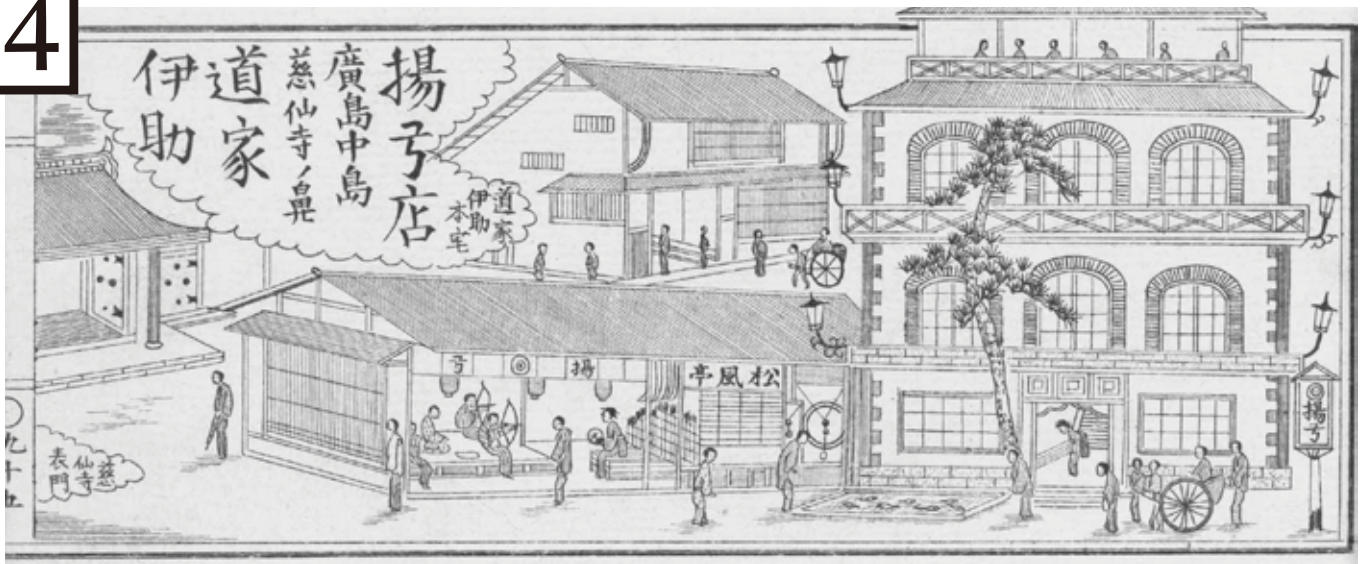 4
揚弓店
廣島中島
慈仙寺ノ鼻
道家
伊助
道家
伊助
本宅
揚◎弓
松風亭
◎揚弓
慈
仙寺
表門
〇九十五